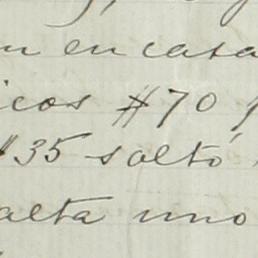 en casa
icos #70
$35 saltó
alta uno